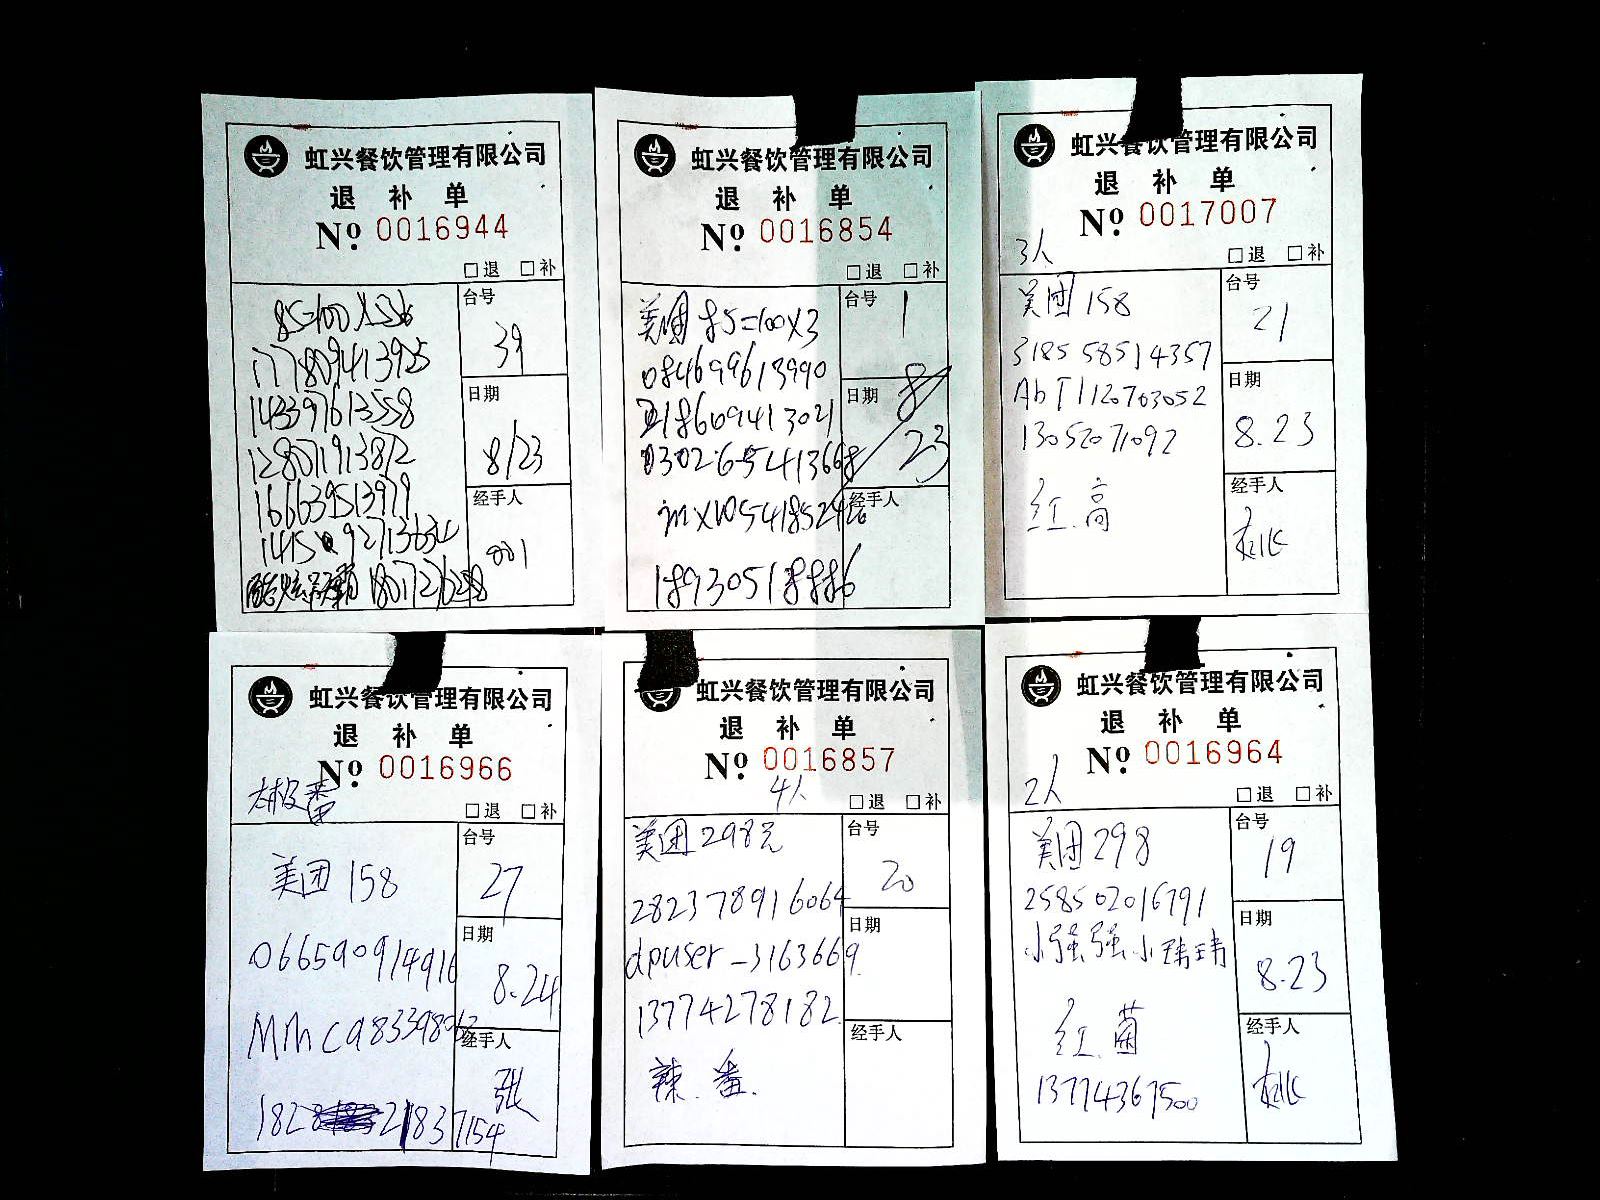 虹兴餐饮管理有限公司
退 补 单
№ 0016944
□退 □补
85=100X536
台号
39
1778094413925
日期
8/23
143397613558
128071913872
166639513979
经手人
001
1415 92713634
18017276258
虹兴餐饮管理有限公司
退 补 单
№ 0016854
□退 □补
美团85=100X3
台号
1
084699613990
日期
8/23
2186094413021
0302654413668
经手人
18930518886
虹兴餐饮管理有限公司
退 补 单
№ 0017007
3人
□退 □补
美团 158
台号
21
3185 58514357
AbT1120703052
日期
8.23
13052071092
红.高
经手人
虹兴餐饮管理有限公司
退 补 单
№ 0016966
□退 □补
美团 158
台号
27
066590914916
日期
8.24
Mmca83398062
经手人
张
1828 21837154
虹兴餐饮管理有限公司
退 补 单
№ 0016857
4人
□退 □补
美团298元
台号
20
282378916064
日期
dpuser-3163669
13774278182
经手人
辣.番.
虹兴餐饮管理有限公司
退 补 单
№ 0016964
2人
□退 □补
美团298
台号
19
258502016791
小强强小玮玮
日期
8.23
红.菌
经手人
13774367500